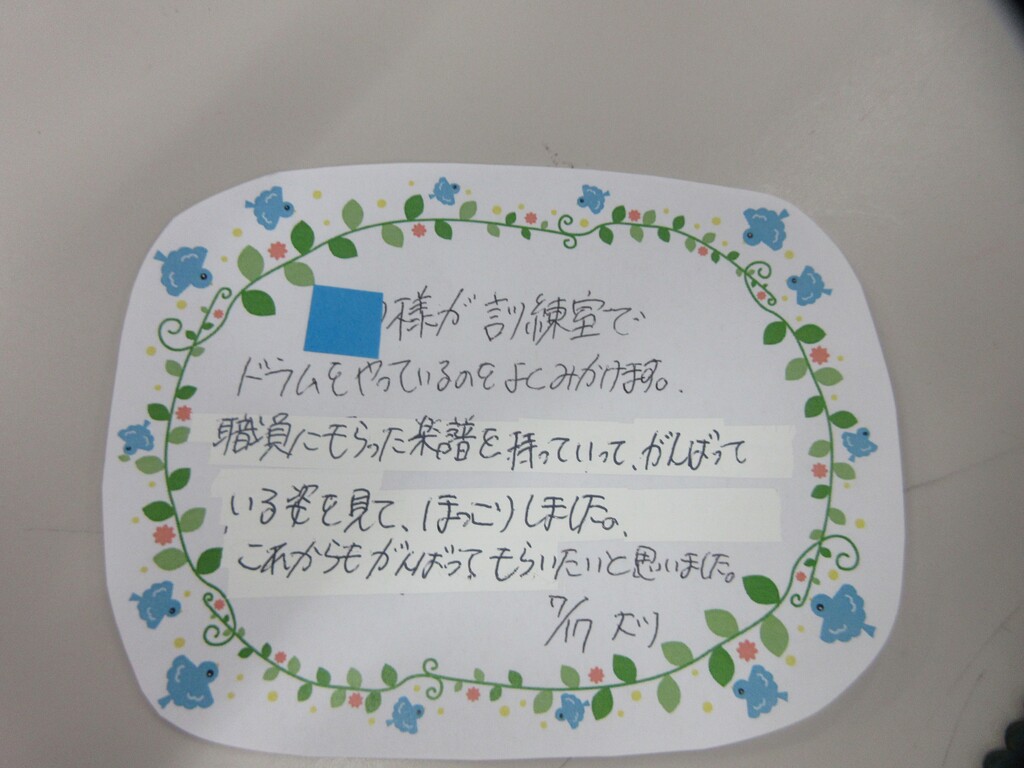 様が訓練室で
ドラムをやっているのをよくみかけます。
職員にもらった楽譜を持っていって、がんばって
いる姿を見て、ほっこりしました。
これからもがんばってもらいたいと思いました。
7/17